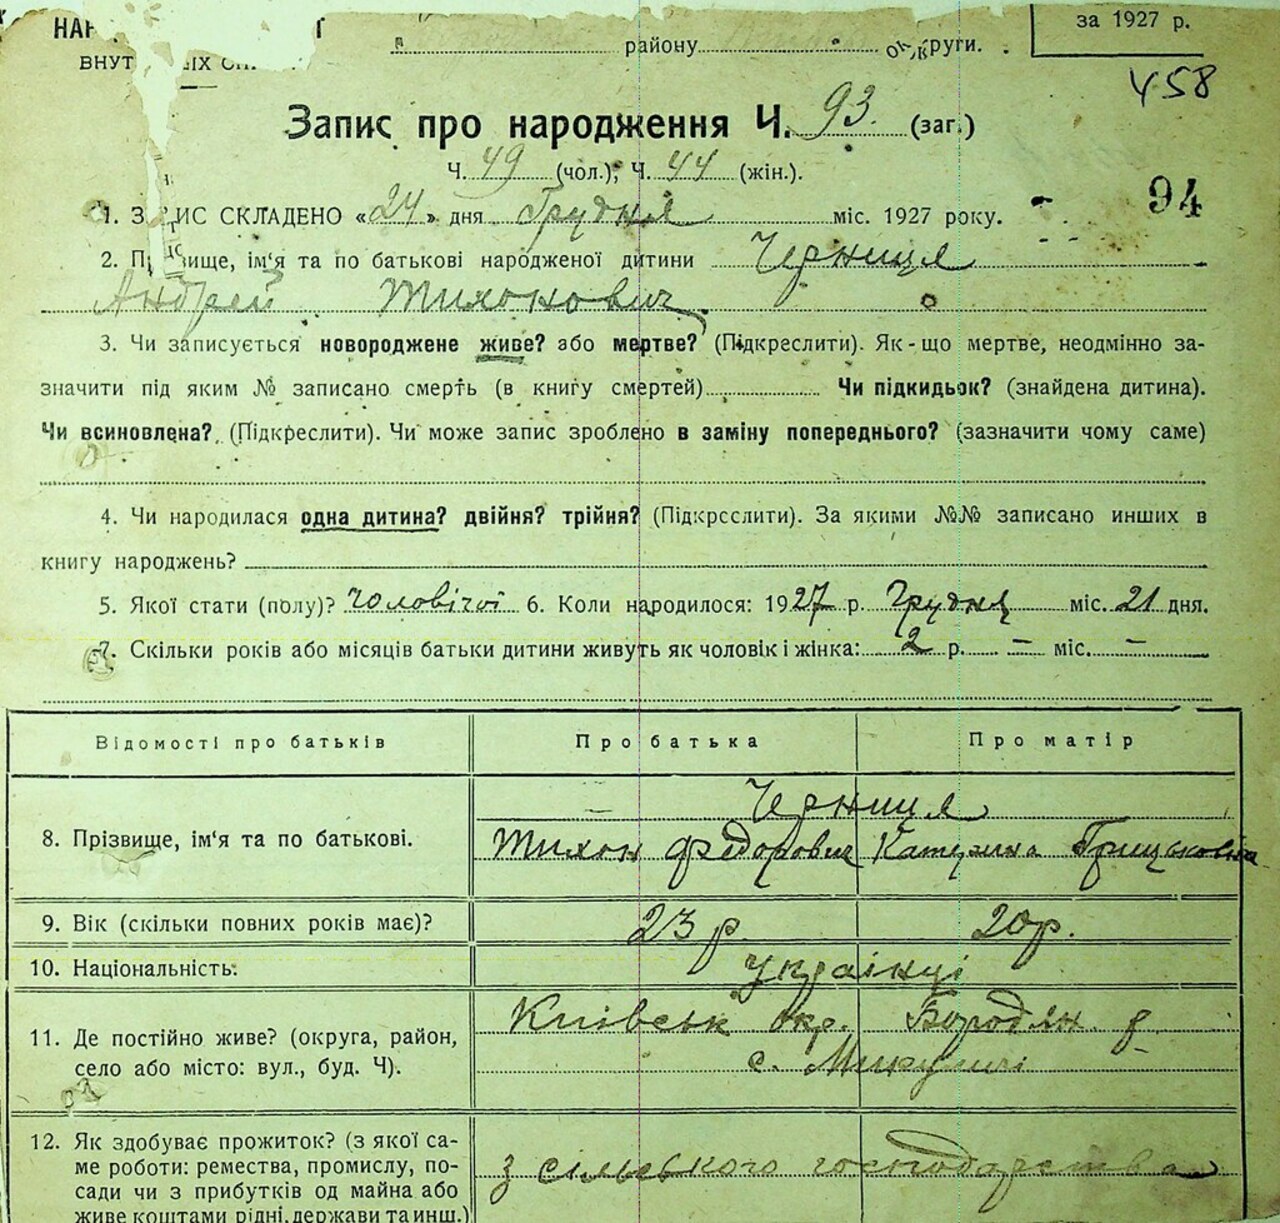 НАР
за 1927 р.
району округи.
ВНУТ ІХ СП
458
Запис про народження Ч. 93. (заг.)
Ч. 49 (чол.); Ч. 44 (жін.).
94
1. З ИС СКЛАДЕНО «24» дня Грудня міс. 1927 року.
2. П вище, ім'я та по батькові народженої дитини Черниця
Андрей Тихонович
3. Чи записується новороджене живе? або мертве? (Підкреслити). Як-що мертве, неодмінно за-
значити під яким № записано смерть (в книгу смертей) Чи підкидьок? (знайдена дитина).
Чи всиновлена? (Підкреслити). Чи може запис зроблено в заміну попереднього? (зазначити чому саме)
4. Чи народилася одна дитина? двійня? трійня? (Підкреслити). За якими №№ записано инших в
книгу народжень?
5. Якої стати (полу)? чоловічої 6. Коли народилося: 1927 р. Грудня міс. 21 дня.
7. Скільки років або місяців батьки дитини живуть як чоловік і жінка: 2 р. — міс. —
Відомості про батьків Про батька Про матір
Черниця
8. Прізвище, ім'я та по батькові. Тихон Федорович Катерина Грицьковна
9. Вік (скільки повних років має)? 23 р. 20 р.
10. Національність. Українці
11. Де постійно живе? (округа, район, Київськ окр. Бородян. р.
село або місто: вул., буд. Ч). с. Микуличі
12. Як здобуває прожиток? (з якої са-
ме роботи: ремества, промислу, по- з сільського господарства
сади чи з прибутків од майна або
живе коштами рідні, держави та инш.)